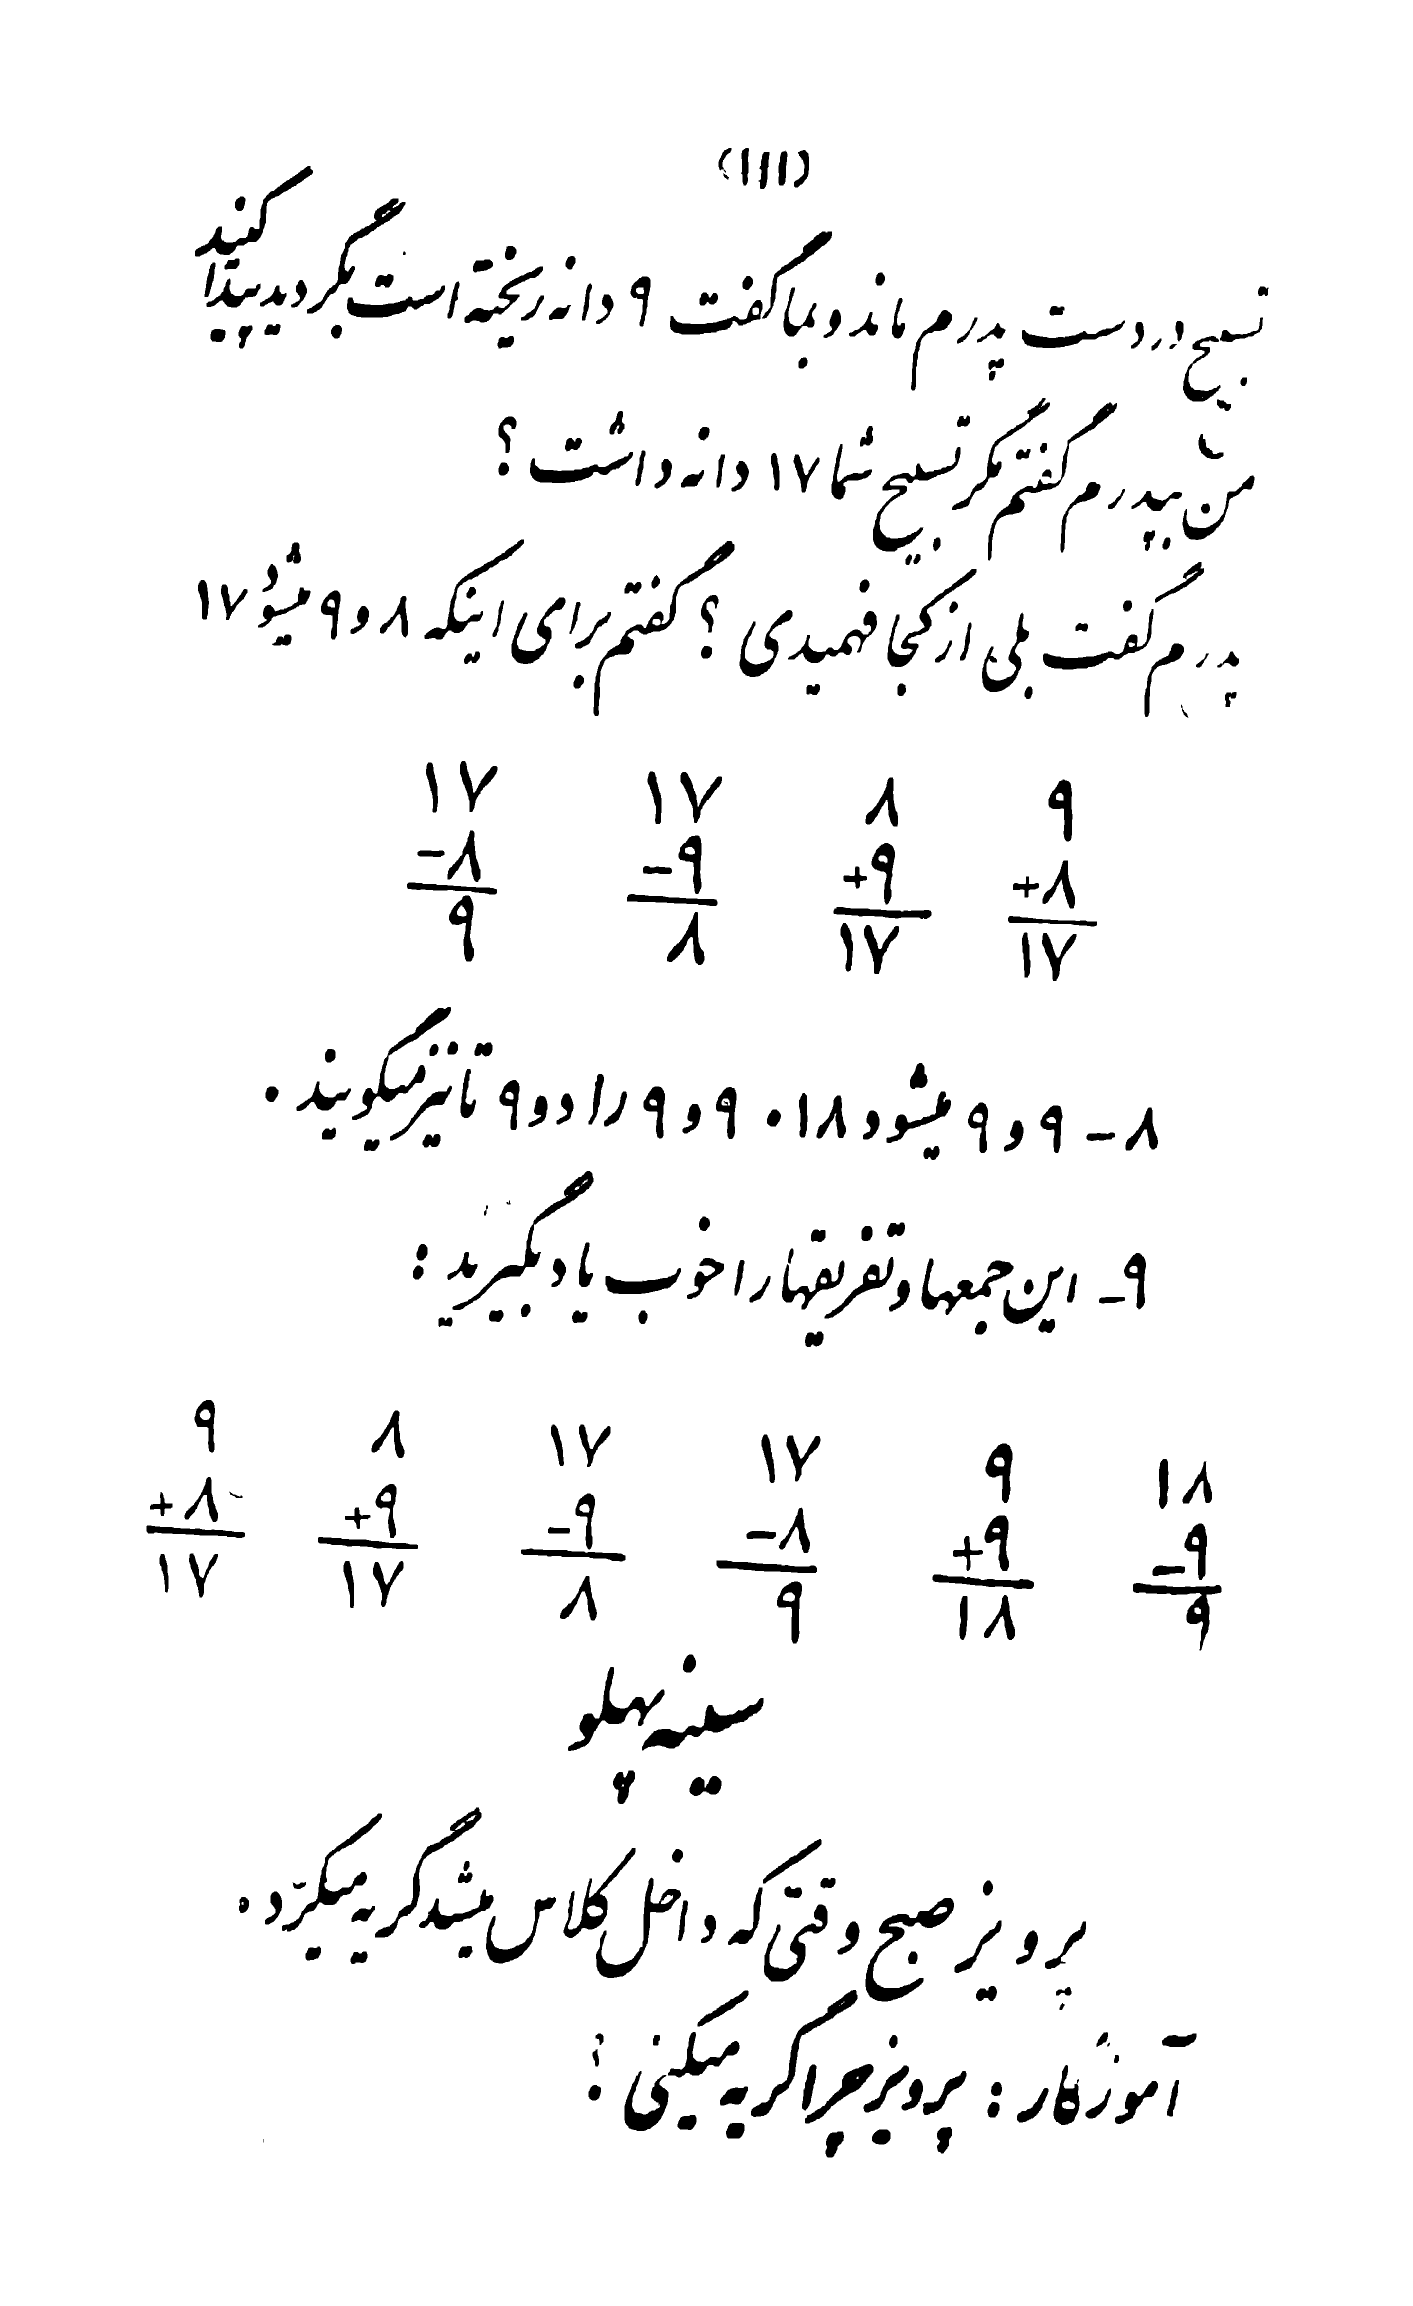 (۱۱۱)
تسبیح در دست پدرم ماند و بما گفت ۹ دانه ریخته است بگردید پیدا کنید
من بپدرم گفتم مگر تسبیح شما ۱۷ دانه داشت ؟
پدرم گفت بلی از کجا فهمیدی ؟ گفتم برای اینکه ۸ و ۹ میشود ۱۷
۹ ۸ ۱۷ ۱۷
+۸ +۹ -۹ -۸
۱۷ ۱۷ ۸ ۹
۸ - ۹ و ۹ میشود ۱۸ . ۹ و ۹ را دو ۹ تا نیز میگویند .
۹ - این جمعها و تفریقها را خوب یاد بگیرید :
۱۸ ۹ ۱۷ ۱۷ ۸ ۹
-۹ +۹ -۸ -۹ +۹ +۸
۹ ۱۸ ۹ ۸ ۱۷ ۱۷
سینه پهلو
پرویز صبح وقتی که داخل کلاس میشد گریه میکرد .
آموزگار : پرویز چرا گریه میکنی ؟